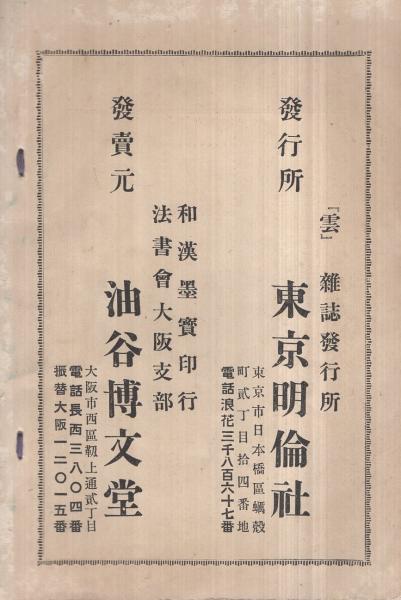 「雲」雜誌發行所
發行所 東京明倫社
東京市日本橋區蠣殻
町貳丁目拾四番地
電話浪花三千八百六十七番
和漢墨寶印行
法書會大阪支部
發賣元 油谷博文堂
大阪市西區靱上通貳丁目
電話長西三八〇四番
振替大阪一二〇一五番